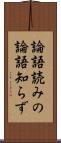 論語読みの
論語知らず